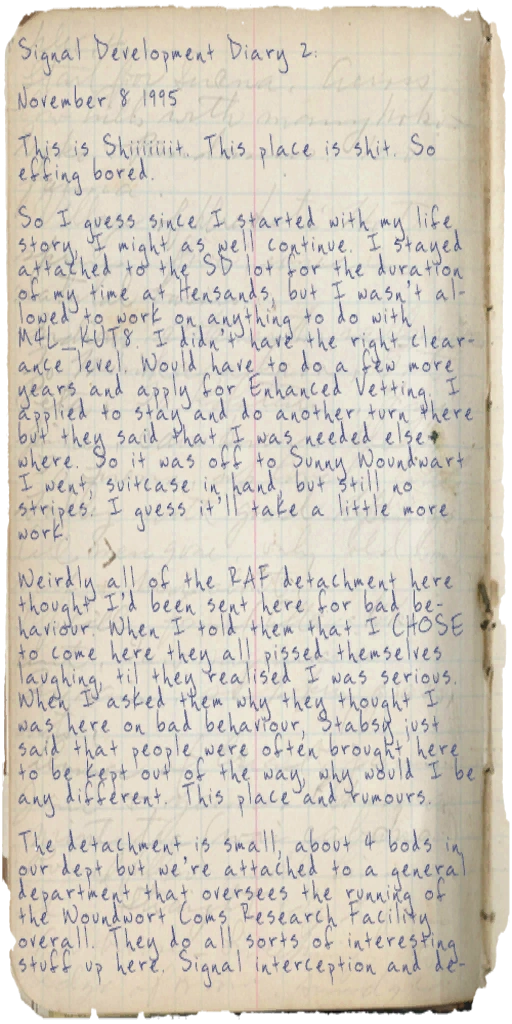 Signal Development Diary 2.
November 8 1995
This is Shiiiiiiit. This place is shit. So
effing bored.
So I guess since I started with my life
story, I might as well continue. I stayed
attached to the SD lot for the duration
of my time at Hensands, but I wasn't al-
lowed to work on anything to do with
M4L_KUT8. I didn't have the right clear-
ance level. Would have to do a few more
years and apply for Enhanced Vetting. I
applied to stay and do another turn there
but they said that I was needed else-
where. So it was off to Sunny Woundwart
I went, suitcase in hand, but still no
stripes. I guess it'll take a little more
work.
Weirdly all of the RAF detachment here
thought I'd been sent here for bad be-
haviour. When I told them that I CHOSE
to come here they all pissed themselves
laughing, til they realised I was serious.
When I asked them why they thought I
was here on bad behaviour, Stabsy just
said that people were often brought here
to be kept out of the way, why would I be
any different. This place and rumours.
The detachment is small, about 4 bods in
our dept but we're attached to a general
department that oversees the running of
the Woundwort Coms Research Facility
overall. They do all sorts of interesting
stuff up here. Signal interception and de-